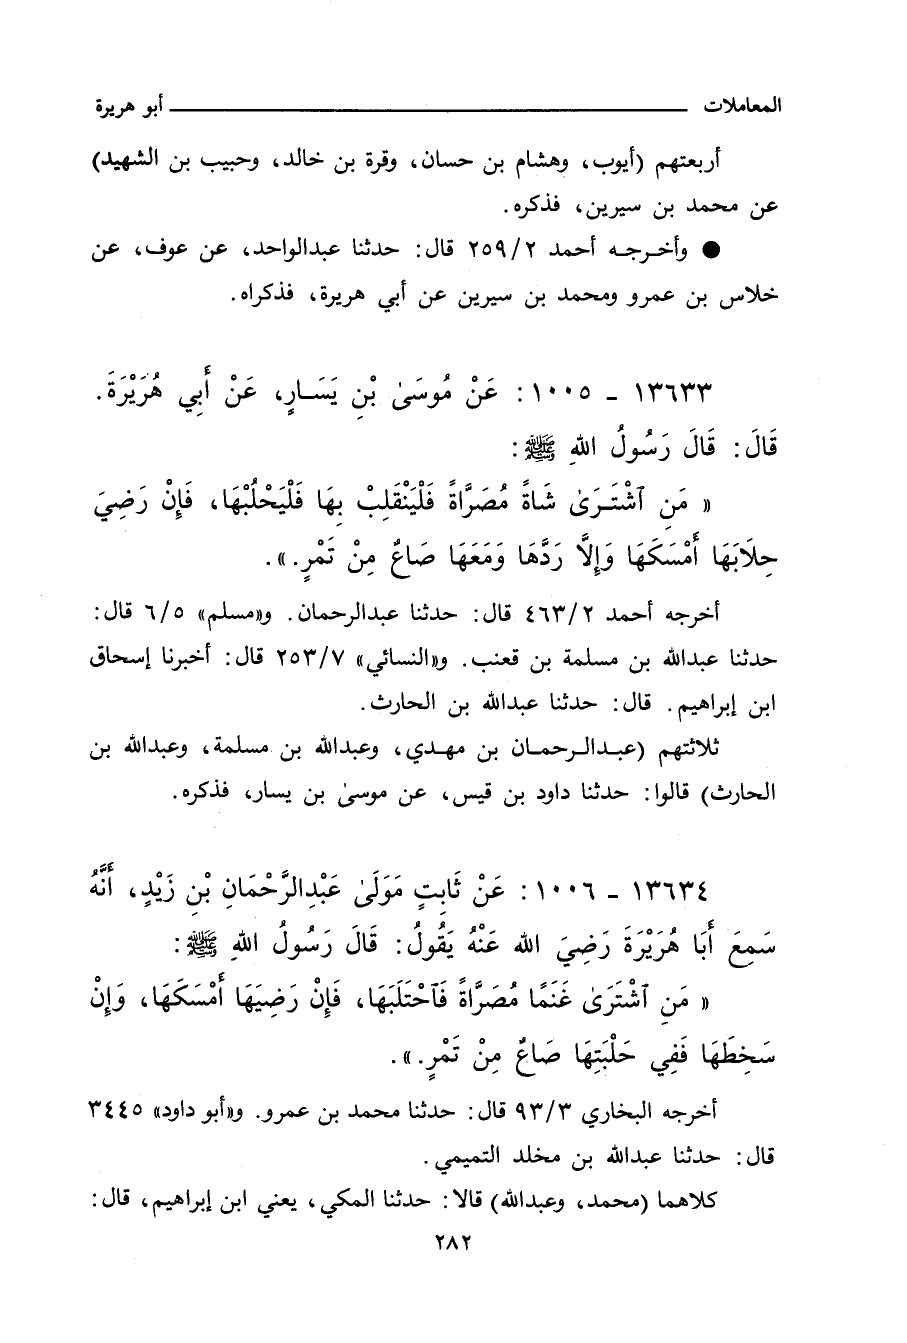 المعاملات ــــــــــــــــــــــــــــــــــــــــــــــــ أبو هريرة
أربعتهم (أيوب، وهشام بن حسان، وقرة بن خالد، وحبيب بن الشهيد)
عن محمد بن سيرين، فذكره.
● وأخرجه أحمد ٢/٢٥٩ قال: حدثنا عبدالواحد، عن عوف، عن
خلاس بن عمرو ومحمد بن سيرين عن أبي هريرة، فذكراه.
١٣٦٣٣ ـ ١٠٠٥: عَنْ مُوسَىٰ بْنِ يَسَارٍ، عَنْ أَبِي هُرَيْرَةَ.
قَالَ: قَالَ رَسُولُ اللهِ ﷺ:
« مَنِ ٱشْتَرَىٰ شَاةً مُصَرَّاةً فَلْيَنْقَلِبْ بِهَا فَلْيَحْلُبْهَا، فَإِنْ رَضِيَ
حِلَابَهَا أَمْسَكَهَا وَإِلَّا رَدَّهَا وَمَعَهَا صَاعٌ مِنْ تَمْرٍ.».
أخرجه أحمد ٢/٤٦٣ قال: حدثنا عبدالرحمان. و«مسلم» ٦/٥ قال:
حدثنا عبدالله بن مسلمة بن قعنب. و«النسائي» ٧/٢٥٣ قال: أخبرنا إسحاق
ابن إبراهيم. قال: حدثنا عبدالله بن الحارث.
ثلاثتهم (عبدالرحمان بن مهدي، وعبدالله بن مسلمة، وعبدالله بن
الحارث) قالوا: حدثنا داود بن قيس، عن موسىٰ بن يسار، فذكره.
١٣٦٣٤ ـ ١٠٠٦: عَنْ ثَابِتٍ مَوَلَىٰ عَبْدِالرَّحْمَانِ بْنِ زَيْدٍ، أَنَّهُ
سَمِعَ أَبَا هُرَيْرَةَ رَضِيَ الله عَنْهُ يَقُولُ: قَالَ رَسُولُ اللهِ ﷺ:
« مَنِ ٱشْتَرَىٰ غَنَمًا مُصَرَّاةً فَٱحْتَلَبَهَا، فَإِنْ رَضِيَهَا أَمْسَكَهَا، وَإِنْ
سَخِطَهَا فَفِي حَلْبَتِهَا صَاعٌ مِنْ تَمْرٍ.».
أخرجه البخاري ٣/٩٣ قال: حدثنا محمد بن عمرو. و«أبو داود» ٣٤٤٥
قال: حدثنا عبدالله بن مخلد التميمي.
كلاهما (محمد، وعبدالله) قالا: حدثنا المكي، يعني ابن إبراهيم، قال:
٢٨٢